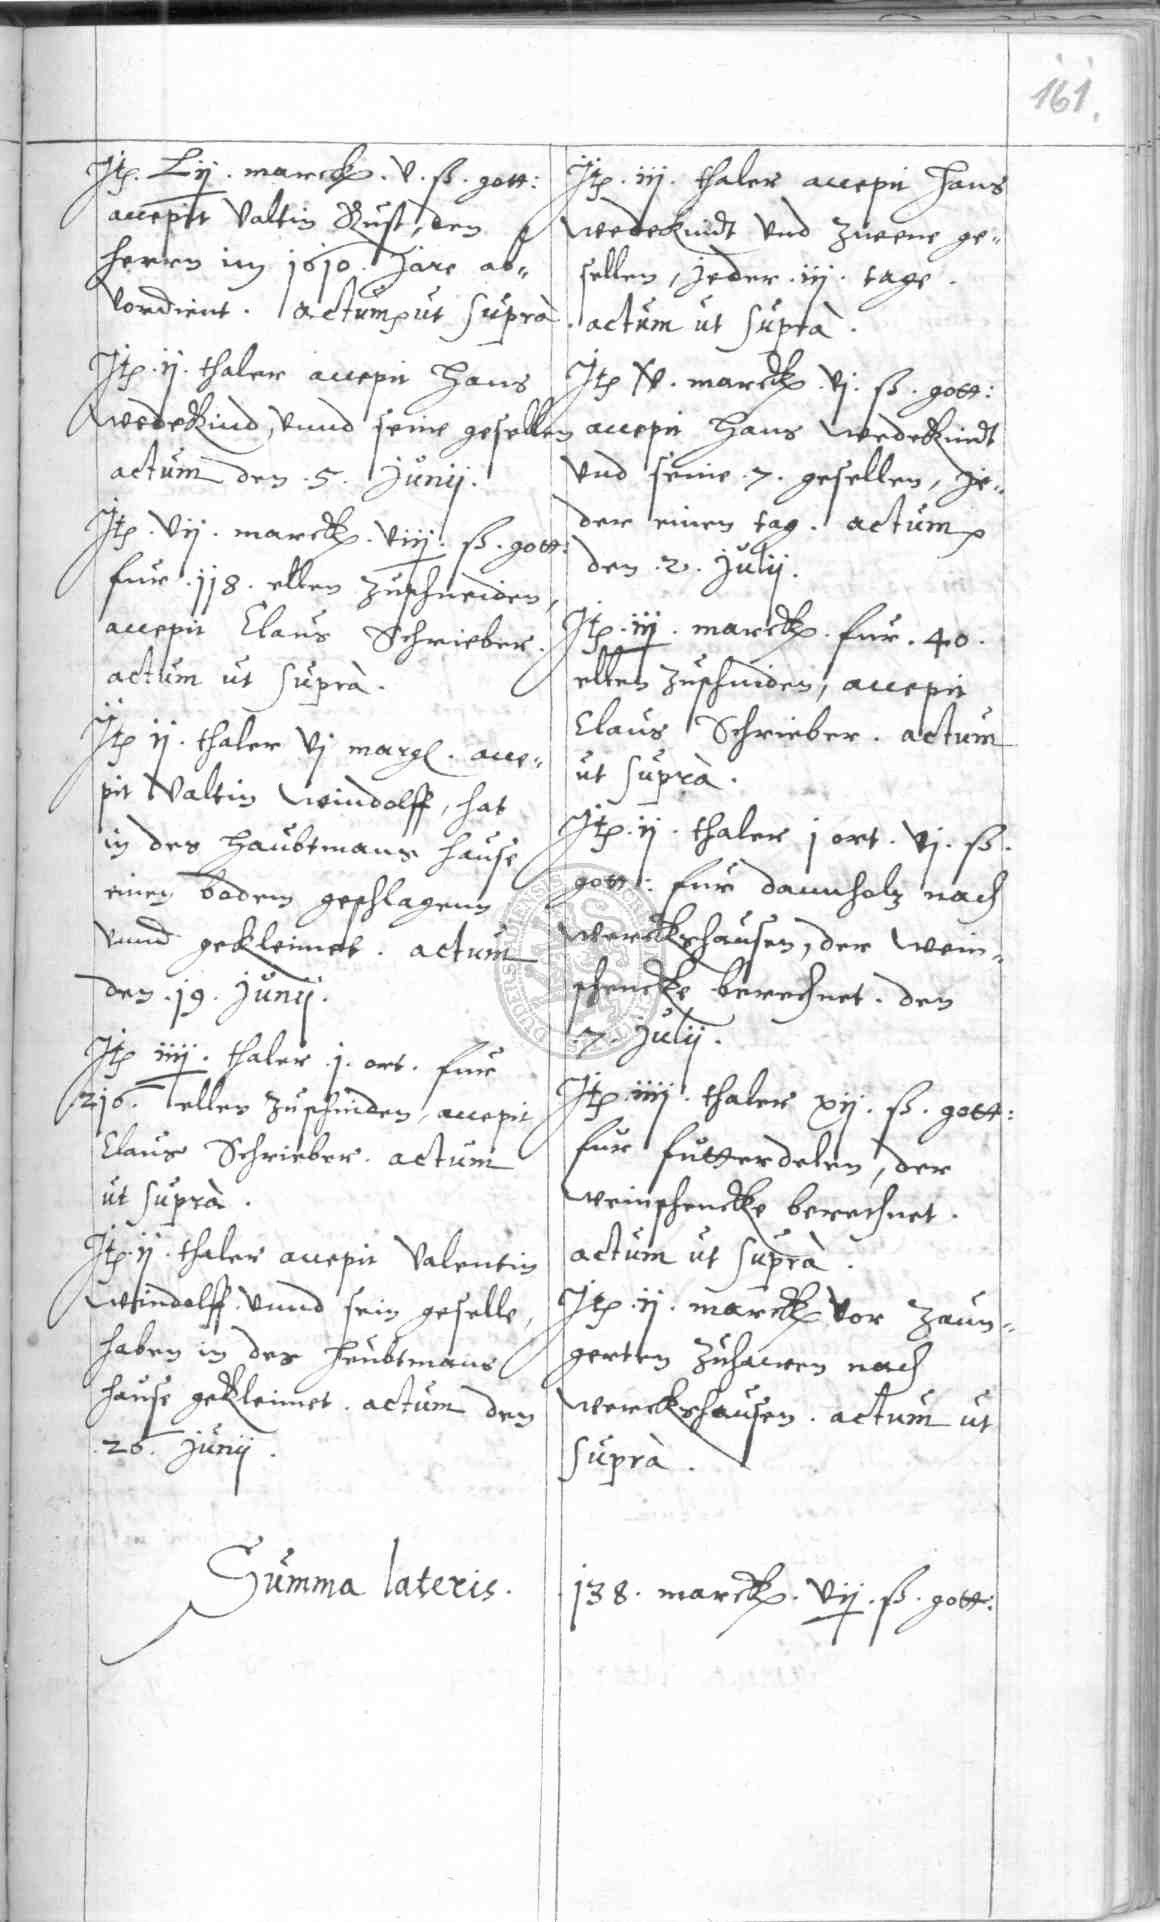 161.
Itp. Lij. marckp. v. ß. gott:
accepit Valtin Rust, den
herrn im 1610. Jare ab„
vordient. actum ut suprà.
Itp. ij. thaler accepit Hans
wedekind, vnnd seine gesellen
actum den .5. Junij.
Itp. vij. marckp. viij. ß. gott:
fur .118. ellen zuschneiden,
accepit Claus Schrieber.
actum ut suprà.
Itp ij. thaler vj margl. acce„
pit Valtin windolff, hat
in des haubtmans hause
einen bodem geschlagenn
vnnd gekleimet. actum
den .19. Junij.
Itp iiij. thaler .j. ort. fur
216. ellen zuschniden, accepit
Claus Schrieber. actum
ut suprà.
Itp. ij. thaler accepit Valentin
windolff vnnd sein geselle,
haben in des heubtmans
hause gekleimet. actum den
.26. Junij.
Itp. iij. thaler accepit Hans
wedekindt vnd zweene ge„
sellen, jeder .iij. tage.
actum ut suprà.
Itp iv. marckp. vj. ß. gott:
accepit Hans wedekindt
vnd seine .7. gesellen, je„
der einen tag. actum
den .2. Julij.
Itp. iij. marckp. fur .40.
ellen zuschniden, accepit
Claus Schrieber. actum
ut suprà.
Itp. ij. thaler j ort. vj. ß.
gott: fur dannholtz nach
werckshausen, der wein„
schencke berechnet. den
.7. Julij.
Itp. iiij. thaler xij. ß. gott:
fur futterdelen, der
weinschencke berechnet.
actum ut suprà.
Itp. ij. marckp vor zaun„
gerten zuhawen nach
werckshausen. actum ut
suprà.
Summa lateris. 138. marckp. vij. ß. gott: